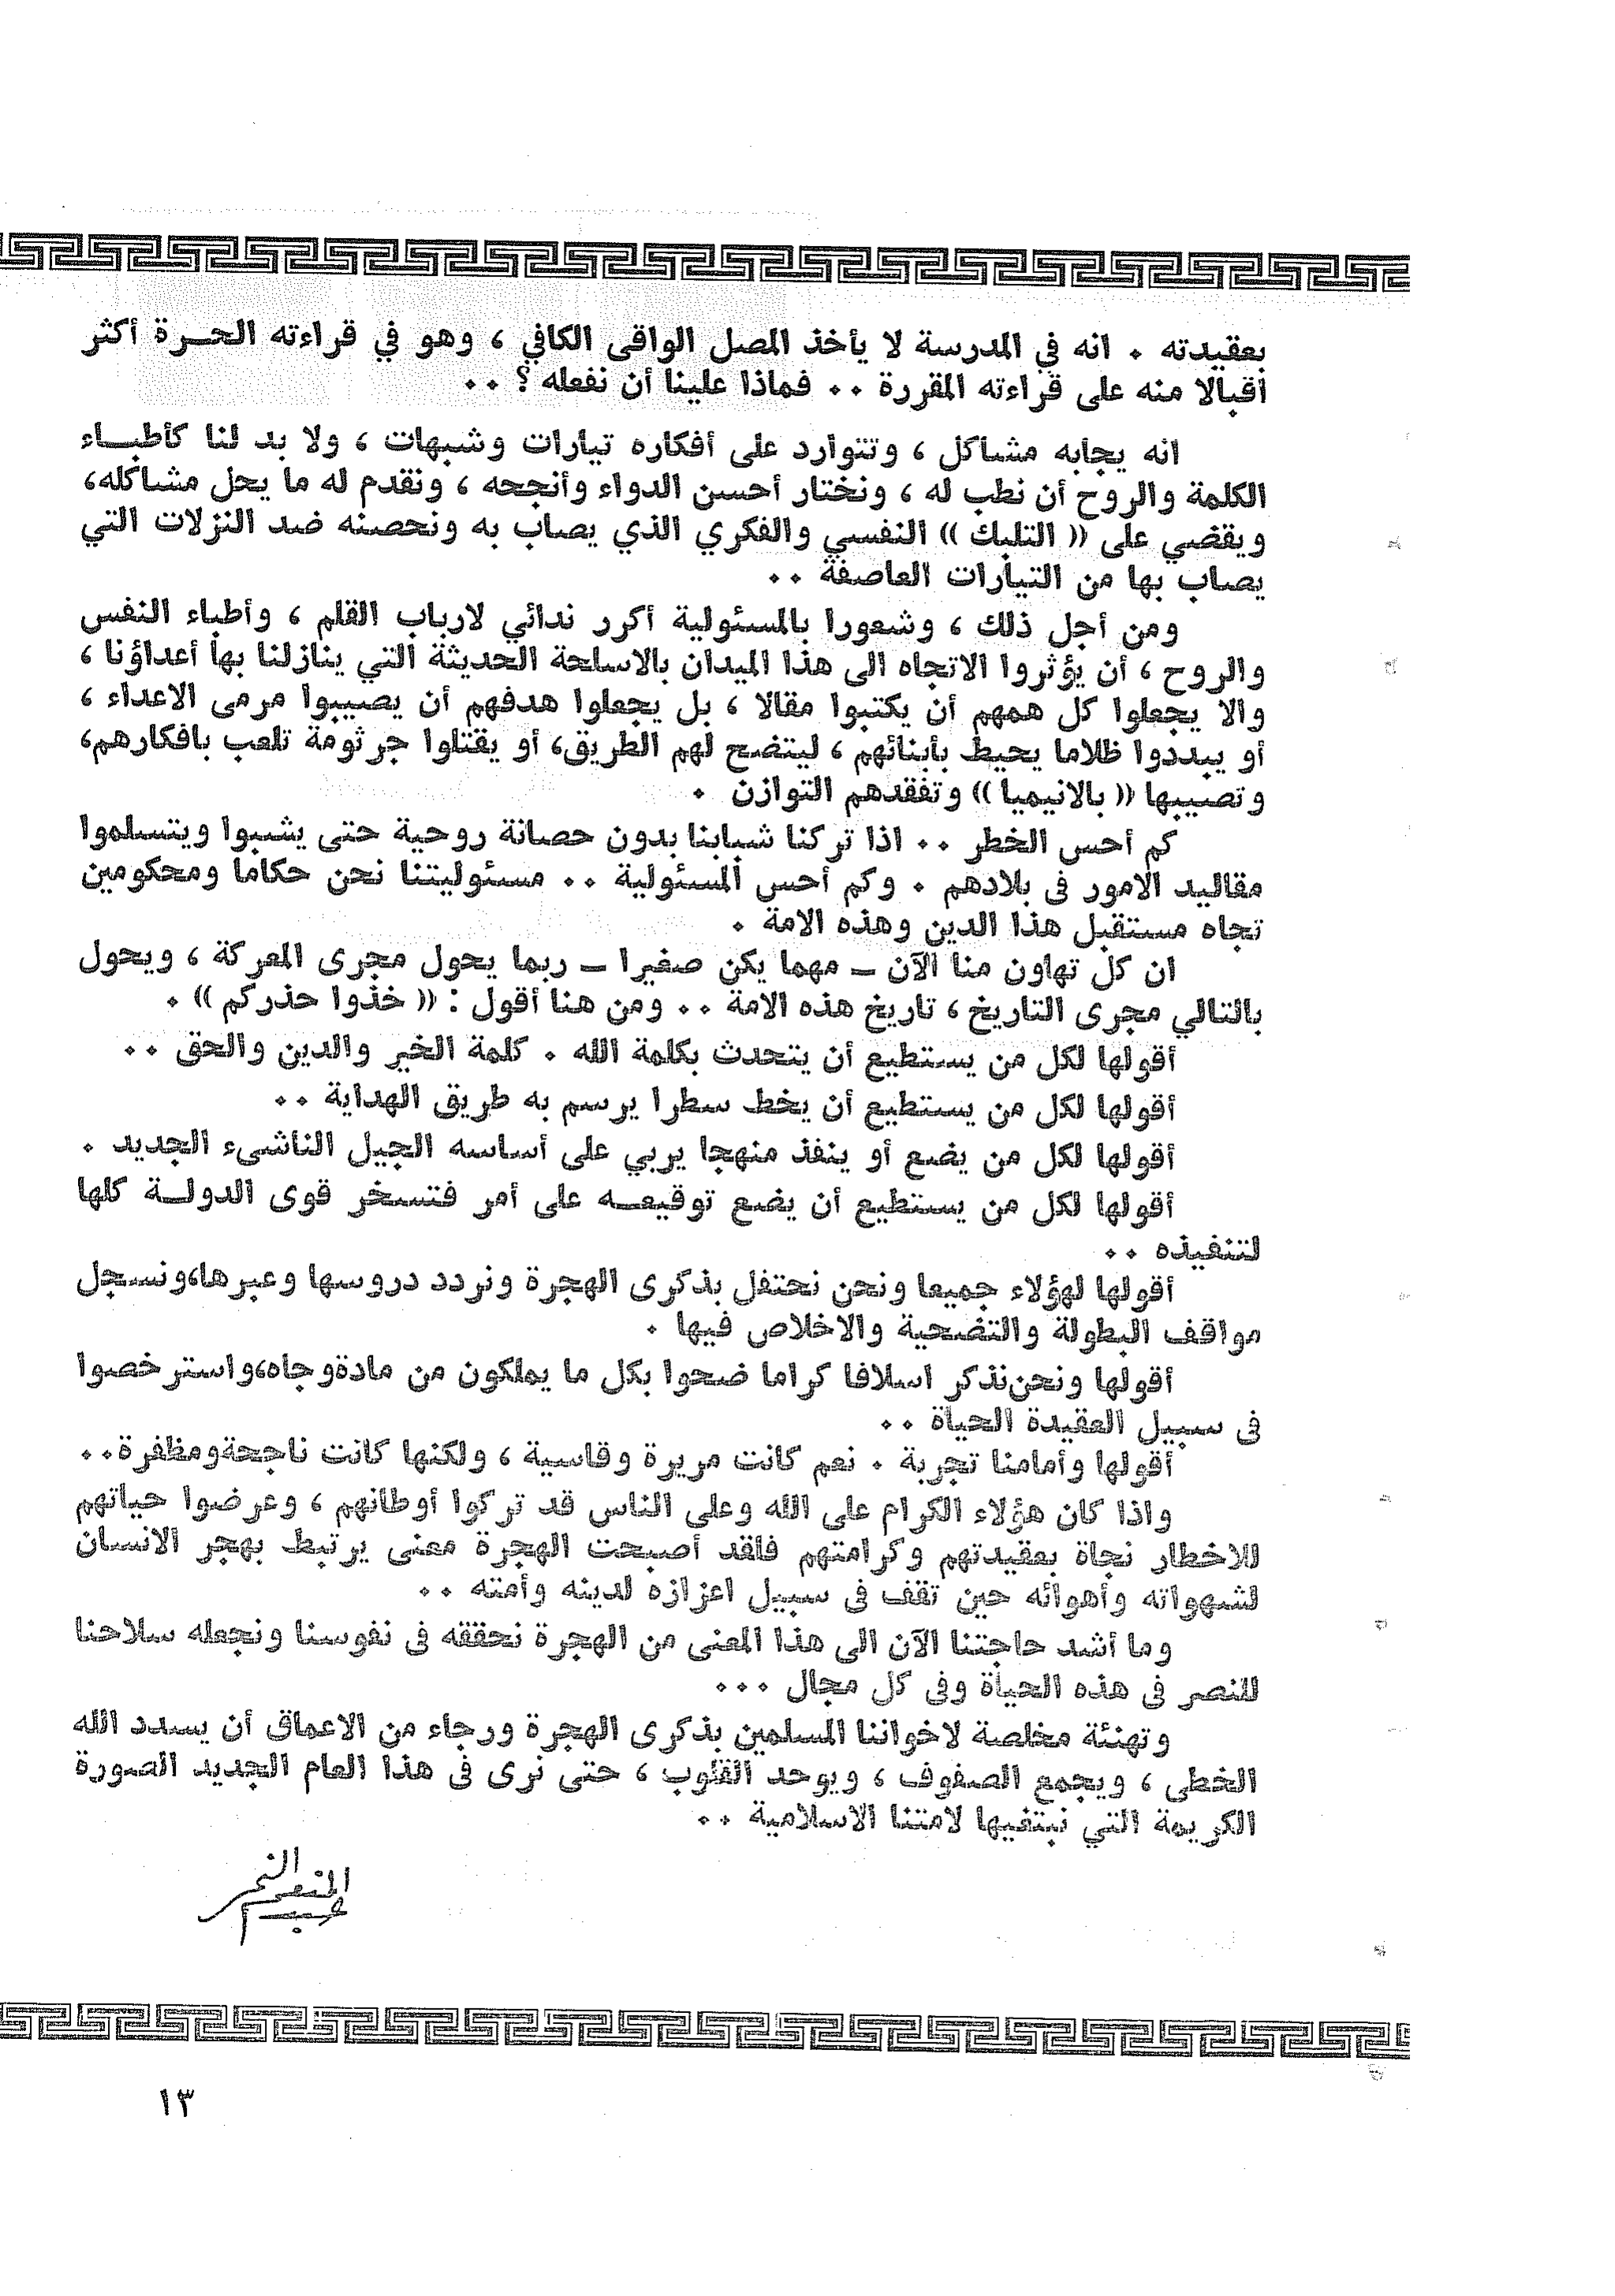 بعقيدته . انه في المدرسة لا يأخذ المصل الواقى الكافي ، وهو في قراءته الحـــرة أكثر
اقبالا منه على قراءته المقررة .. فماذا علينا أن نفعله ؟ ..
انه يجابه مشاكل ، وتتوارد على أفكاره تيارات وشبهات ، ولا بد لنا كأطبـــاء
الكلمة والروح أن نطب له ، ونختار أحسن الدواء وأنجحه ، ونقدم له ما يحل مشاكله،
ويقضي على (( التلبك )) النفسي والفكري الذي يصاب به ونحصنه ضد النزلات التي
يصاب بها من التيارات العاصفة ..
ومن أجل ذلك ، وشعورا بالمسئولية أكرر ندائي لارباب القلم ، وأطباء النفس
والروح ، أن يؤثروا الاتجاه الى هذا الميدان بالاسلحة الحديثة التي ينازلنا بها أعداؤنا ،
والا يجعلوا كل همهم أن يكتبوا مقالا ، بل يجعلوا هدفهم أن يصيبوا مرمى الاعداء ،
أو يبددوا ظلاما يحيط بأبنائهم ، ليتضح لهم الطريق، أو يقتلوا جرثومة تلعب بافكارهم،
وتصيبها (( بالانيميا )) وتفقدهم التوازن .
كم أحس الخطر .. اذا تركنا شبابنا بدون حصانة روحية حتى يشبوا ويتسلموا
مقاليد الامور فى بلادهم . وكم أحس المسئولية .. مسئوليتنا نحن حكاما ومحكومين
تجاه مستقبل هذا الدين وهذه الامة .
ان كل تهاون منا الآن – مهما يكن صغيرا – ربما يحول مجرى المعركة ، ويحول
بالتالي مجرى التاريخ ، تاريخ هذه الامة .. ومن هنا أقول : (( خذوا حذركم )) .
أقولها لكل من يستطيع أن يتحدث بكلمة الله . كلمة الخير والدين والحق ..
أقولها لكل من يستطيع أن يخط سطرا يرسم به طريق الهداية ..
أقولها لكل من يضع أو ينفذ منهجا يربي على أساسه الجيل الناشىء الجديد .
أقولها لكل من يستطيع أن يضع توقيعـــه على أمر فتسخر قوى الدولـــة كلها
لتنفيذه ..
أقولها لهؤلاء جميعا ونحن نحتفل بذكرى الهجرة ونردد دروسها وعبرها،ونسجل
مواقف البطولة والتضحية والاخلاص فيها .
أقولها ونحن نذكر اسلافا كراما ضحوا بكل ما يملكون من مادة وجاه،واسترخصوا
فى سبيل العقيدة الحياة ..
أقولها وأمامنا تجربة . نعم كانت مريرة وقاسية ، ولكنها كانت ناجحة ومظفرة..
واذا كان هؤلاء الكرام على الله وعلى الناس قد تركوا أوطانهم ، وعرضوا حياتهم
للاخطار نجاة بعقيدتهم وكرامتهم فلقد أصبحت الهجرة معنى يرتبط بهجر الانسان
لشهواته وأهوائه حين تقف فى سبيل اعزازه لدينه وأمته ..
وما أشد حاجتنا الآن الى هذا المعنى من الهجرة نحققه فى نفوسنا ونجعله سلاحنا
للنصر فى هذه الحياة وفى كل مجال ...
وتهنئة مخلصة لاخواننا المسلمين بذكرى الهجرة ورجاء من الاعماق أن يسدد الله
الخطى ، ويجمع الصفوف ، ويوحد القلوب ، حتى نرى فى هذا العام الجديد الصورة
الكريمة التي نبتغيها لامتنا الاسلامية ..
عبد المنعم النمر
١٣